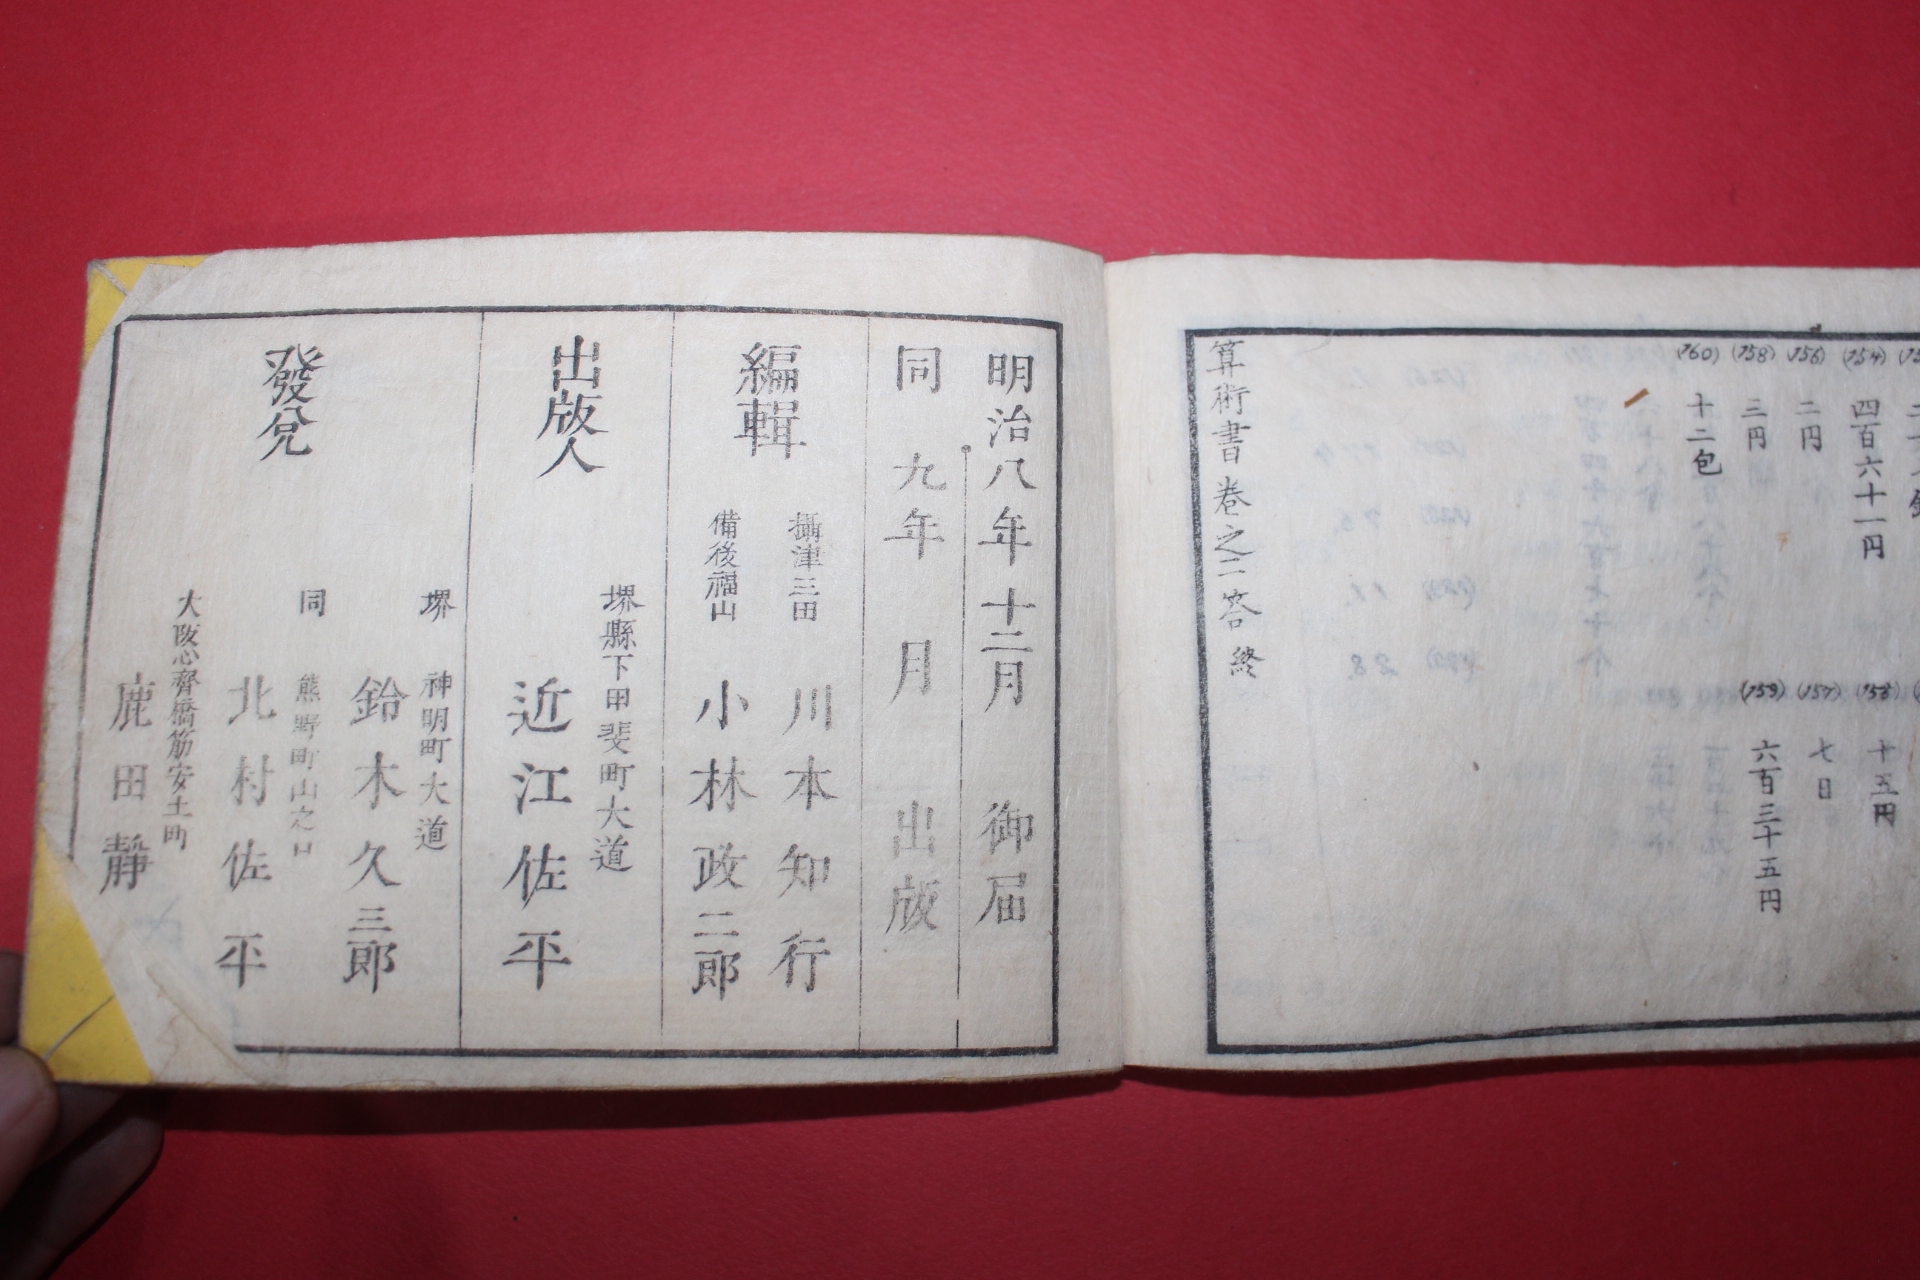 (154)
四百六十一円
(155)
十五円
(156)
二円
(157)
七日
(158)
三円
(159)
六百三十五円
(160)
十二包
算術書巻之二答終
明治八年十二月 御届
同 九年 月 出版
編輯
攝津三田 川本知行
備後福山 小林政二郎
出版人
堺縣下甲斐町大道
近江佐平
發兌
堺 神明町大道
鈴木久三郎
同 熊野町山之口
北村佐平
大阪心齋橋筋安土町
鹿田靜